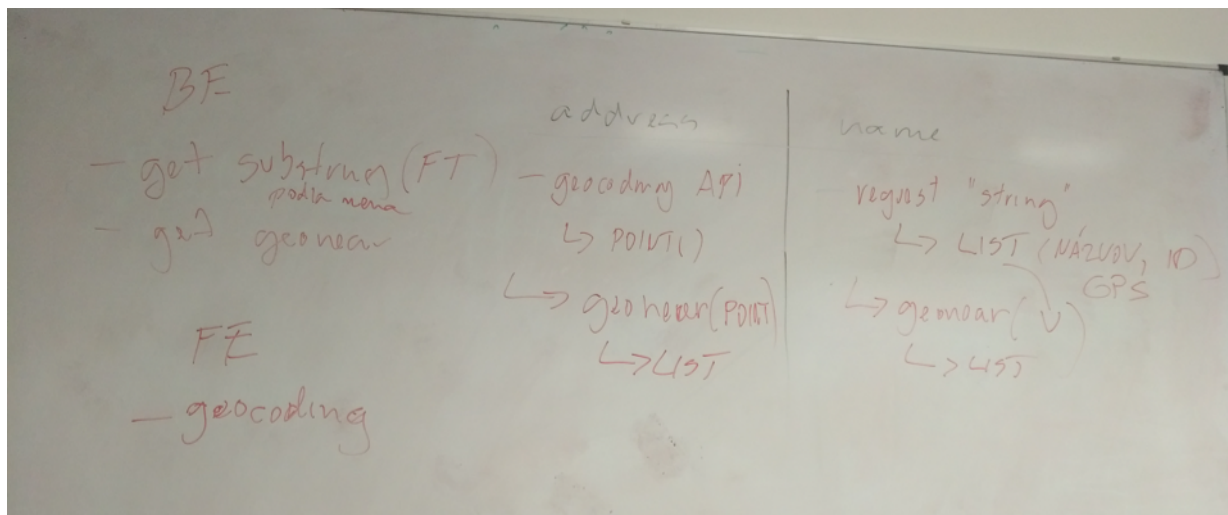 BE
- get substrung (FT)
podla mena
- get geonear
FE
- geocoding
address
- geocoding Api
↳ POINT()
↳ geonear(POINT)
↳ LIST
name
request "string"
↳ LIST (NÁZVOV, ID)
GPS
↳ geonear( )
↳ LIST